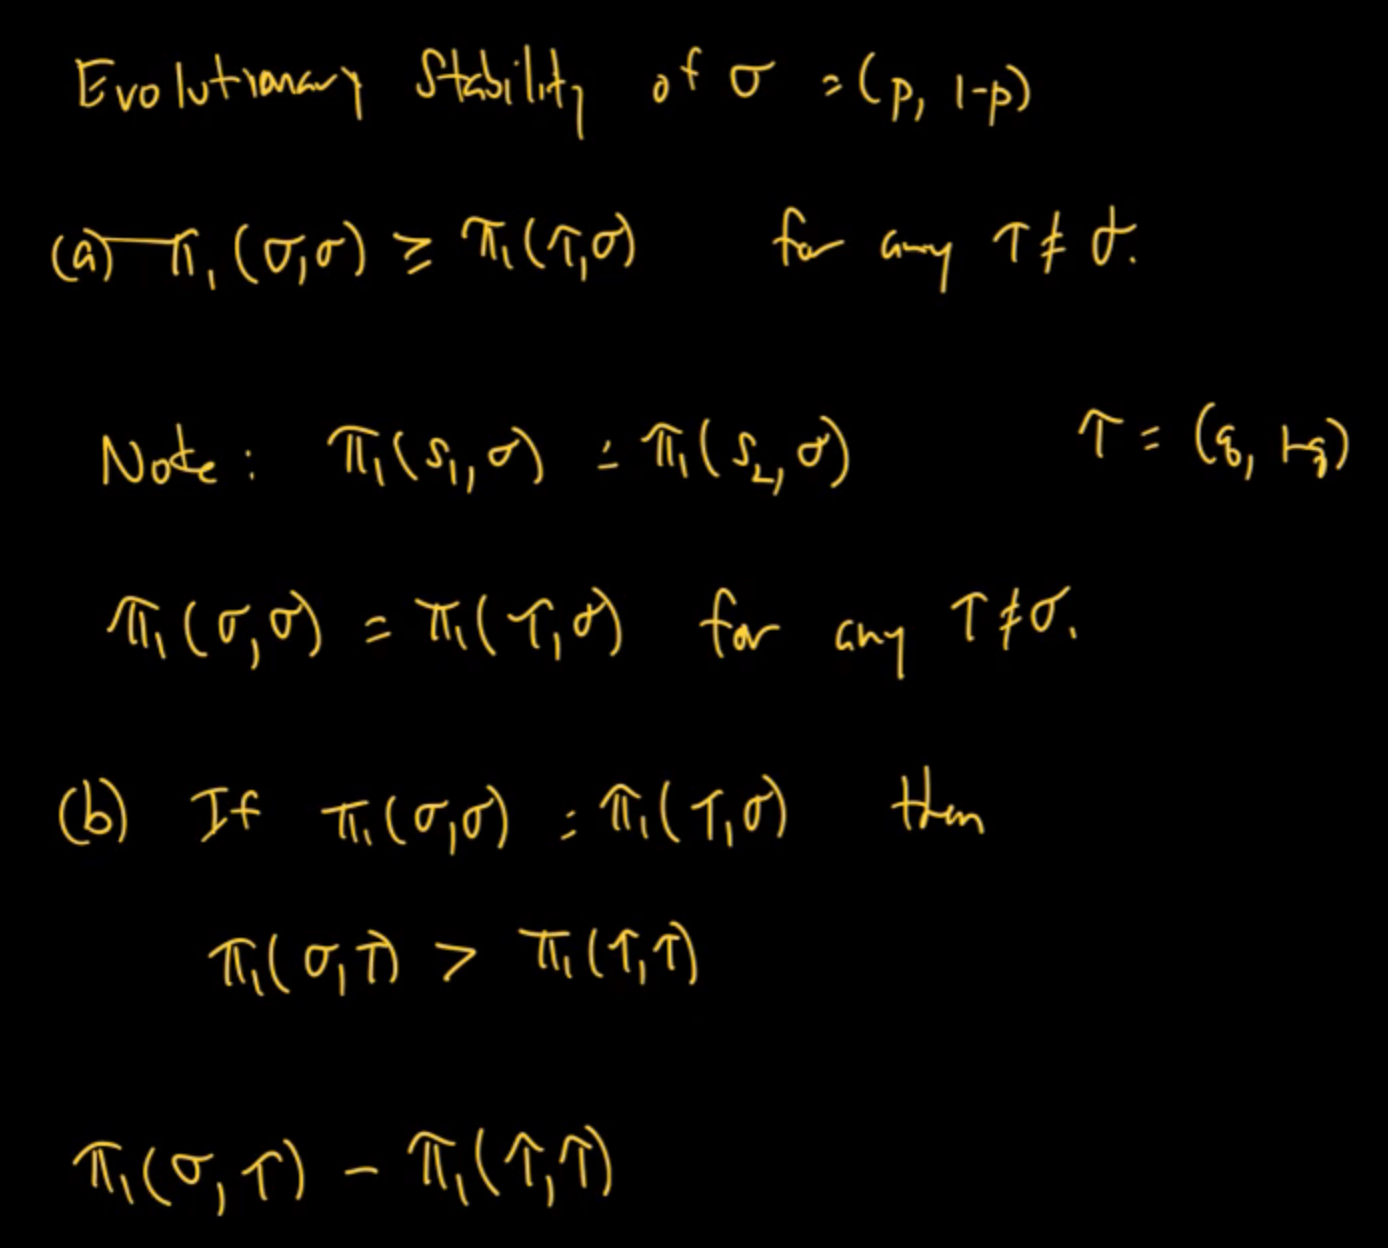 Evolutionary Stability of σ = (p, 1-p)
(a) π₁(σ,σ) ≥ π₁(τ,σ) for any τ ≠ σ.
Note: π₁(s₁,σ) = π₁(s₂,σ) τ = (q, 1-q)
π₁(σ,σ) = π₁(τ,σ) for any τ ≠ σ.
(b) If π₁(σ,σ) = π₁(τ,σ) then
π₁(σ,τ) > π₁(τ,τ)
π₁(σ,τ) - π₁(τ,τ)